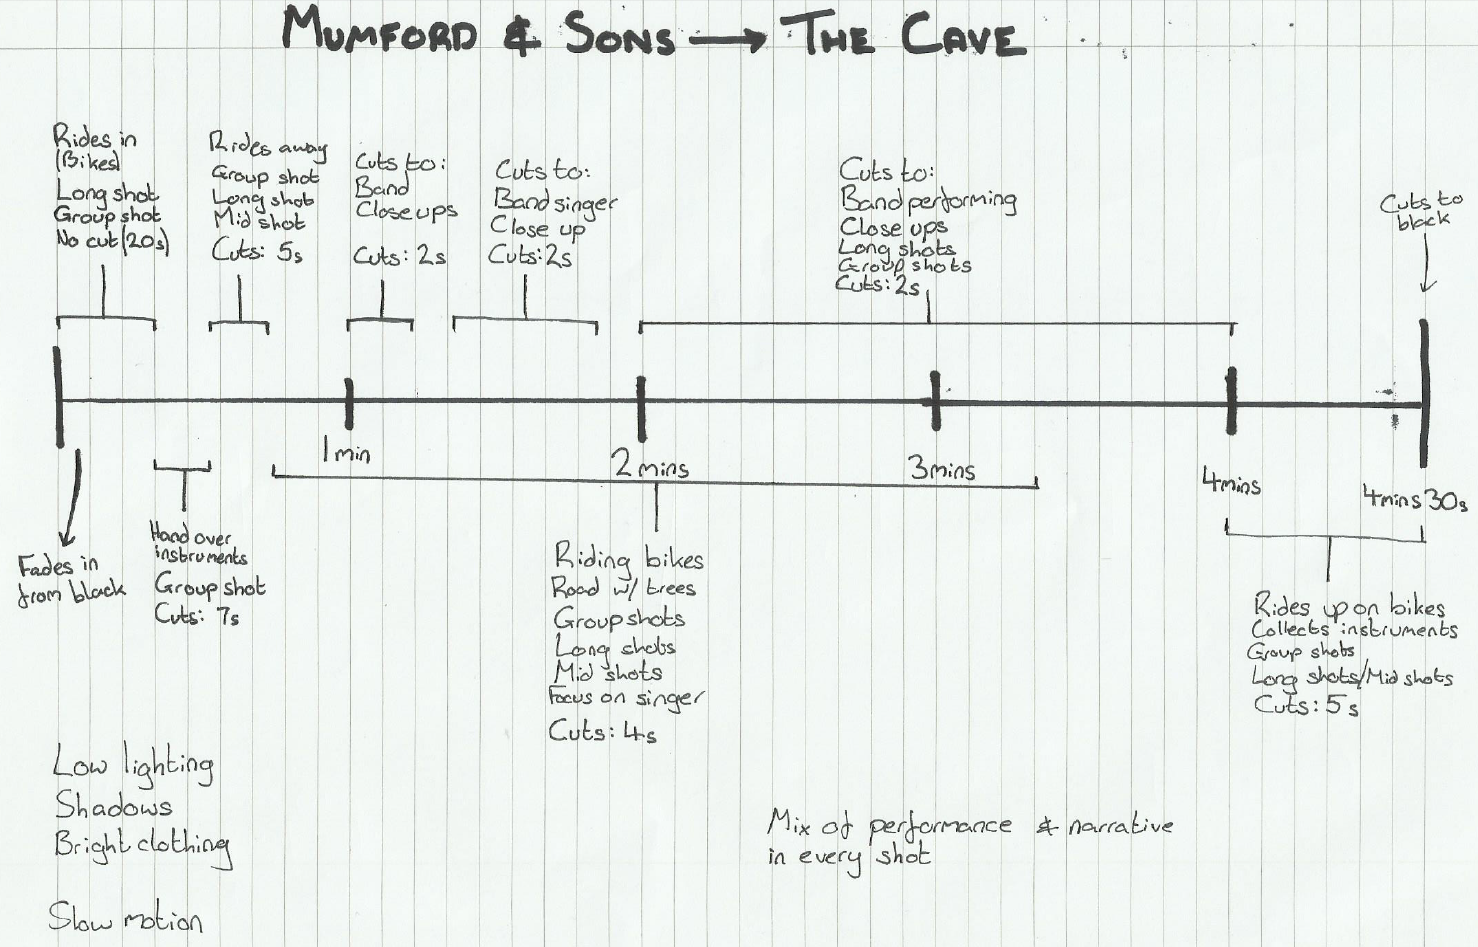 MUMFORD & SONS → THE CAVE
Rides in
(Bikes)
Long shot
Group shot
No cut (20s)
Rides away
Group shot
Long shot
Mid shot
Cuts: 5s
Cuts to:
Band
Close ups
Cuts: 2s
Cuts to:
Band singer
Close up
Cuts: 2s
Cuts to:
Band performing
Close ups
Long shots
Group shots
Cuts: 2s
Cuts to
black
1 min
2 mins
3 mins
4 mins
4 mins 30s
Fades in
from black
Hand over
instruments
Group shot
Cuts: 7s
Riding bikes
Road w/ trees
Group shots
Long shots
Mid shots
Focus on singer
Cuts: 4s
Rides up on bikes
Collects instruments
Group shots
Long shots/Mid shots
Cuts: 5s
Low lighting
Shadows
Bright clothing
Slow motion
Mix of performance & narrative
in every shot